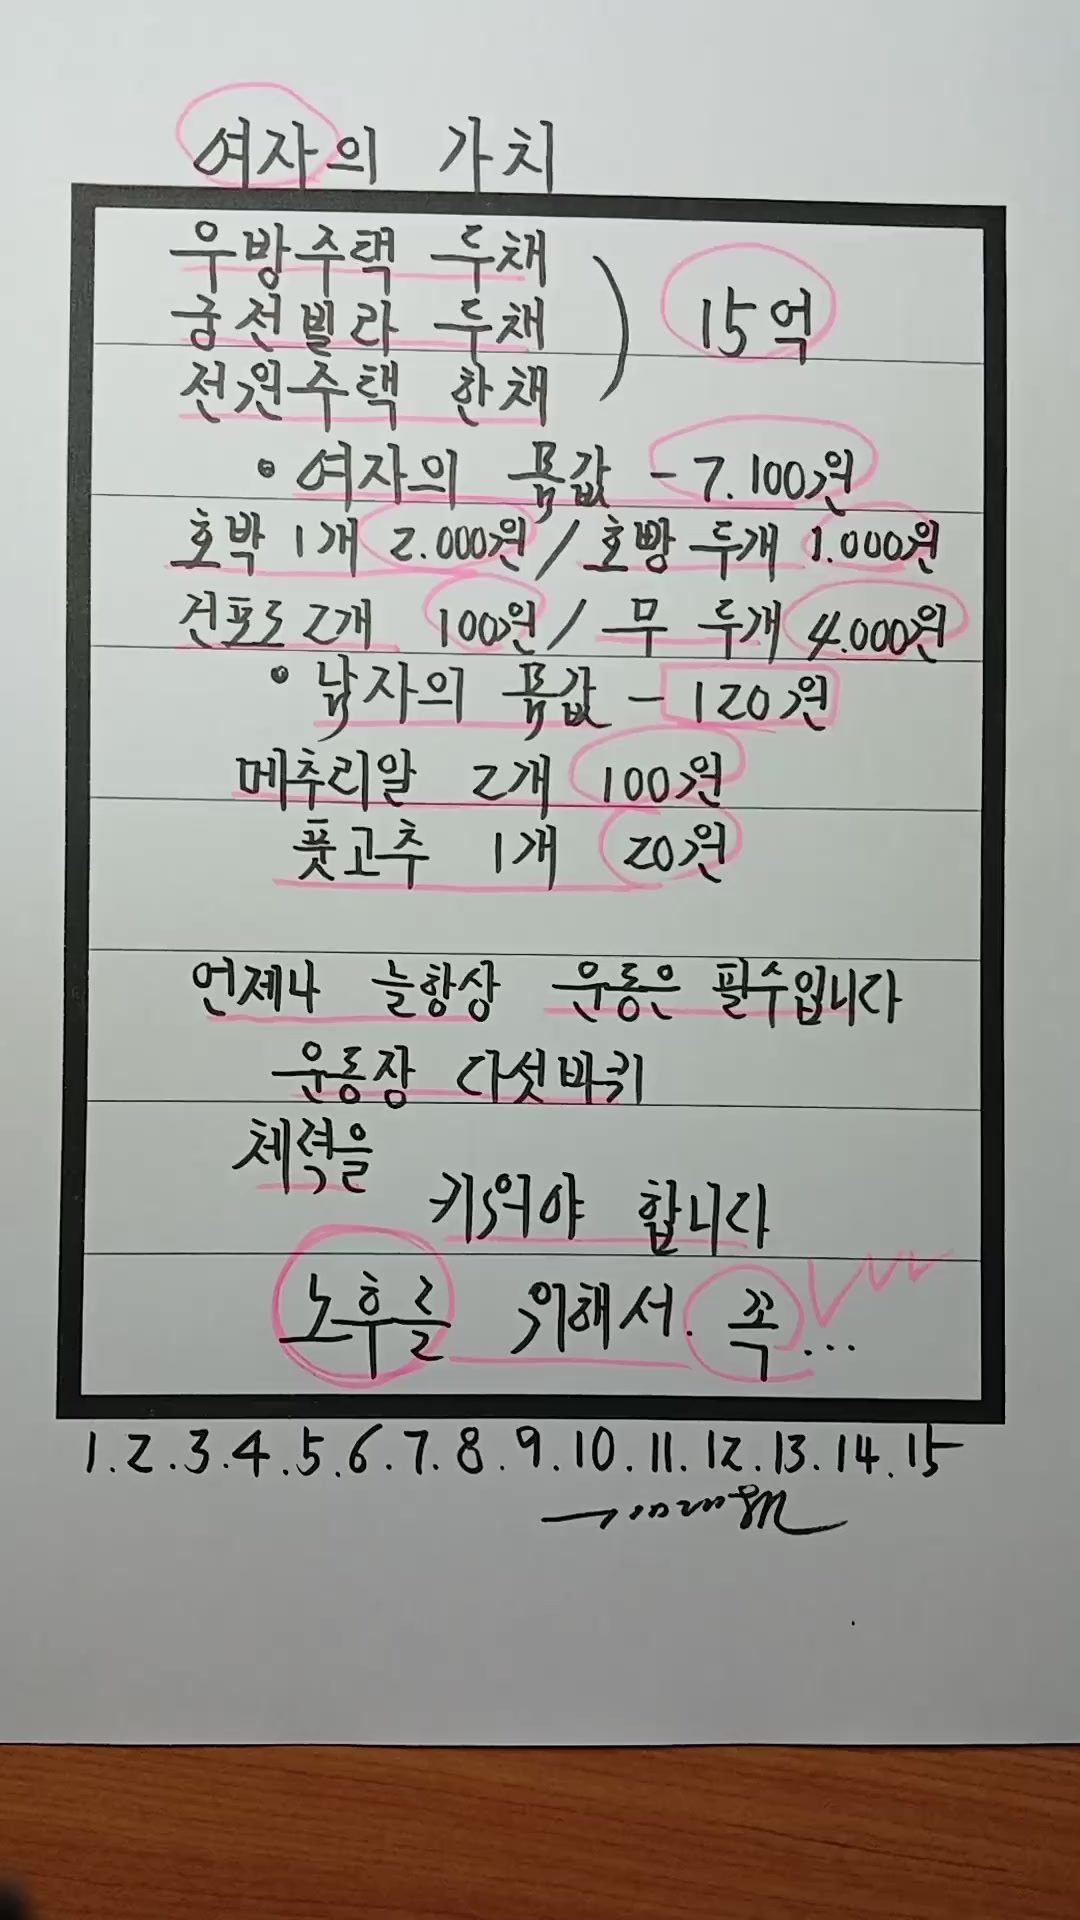 여자의 가치
우방주택 두채
궁전빌라 두채
전원주택 한채
15억
• 여자의 몸값 - 7.100원
호박 1개 2.000원 / 호빵 두개 1.000원
건포도 2개 100원 / 무 두개 4.000원
• 남자의 몸값 - 120원
메추리알 2개 100원
풋고추 1개 20원
언제나 늘항상 운동은 필수입니다
운동장 다섯바퀴
체력을
키워야 합니다
노후를 위해서. 꼭...
1.2.3.4.5.6.7.8.9.10.11.12.13.14.15